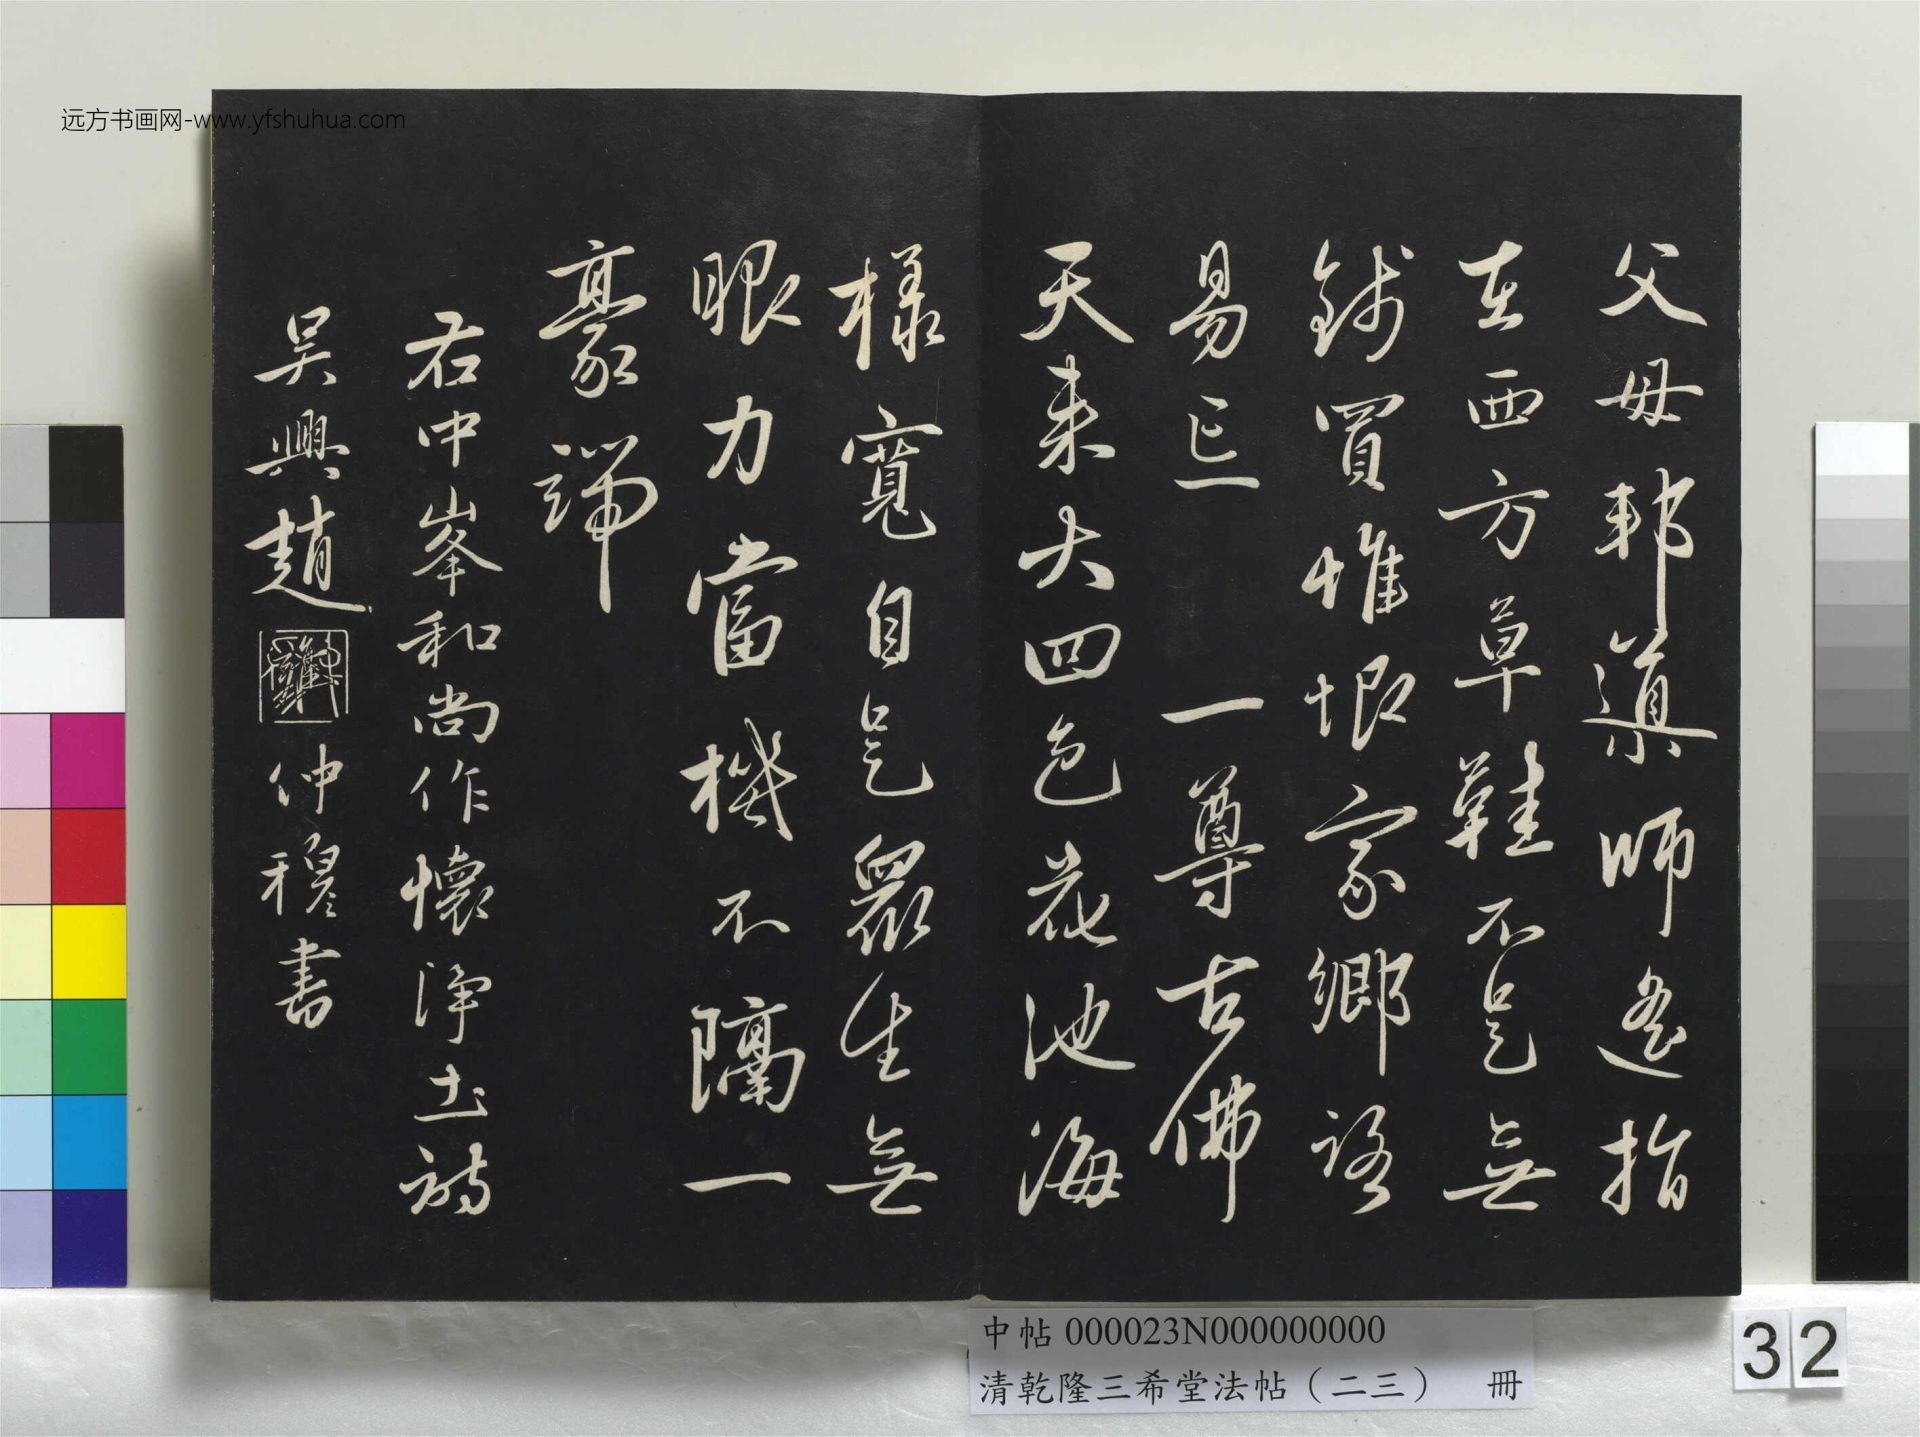 远方书画网-www.yfshuhua.com
父母邦導師遙指
在西方草鞋不是無
錢買惟恨家鄉路
易忘　一尊古佛
天來大四色花池海
樣寬自是眾生無
眼力當機不隔一
豪端
右中峯和尚作懷淨土詩
吴興趙 仲穆書
中帖 000023N000000000
清乾隆三希堂法帖（二三） 冊
32